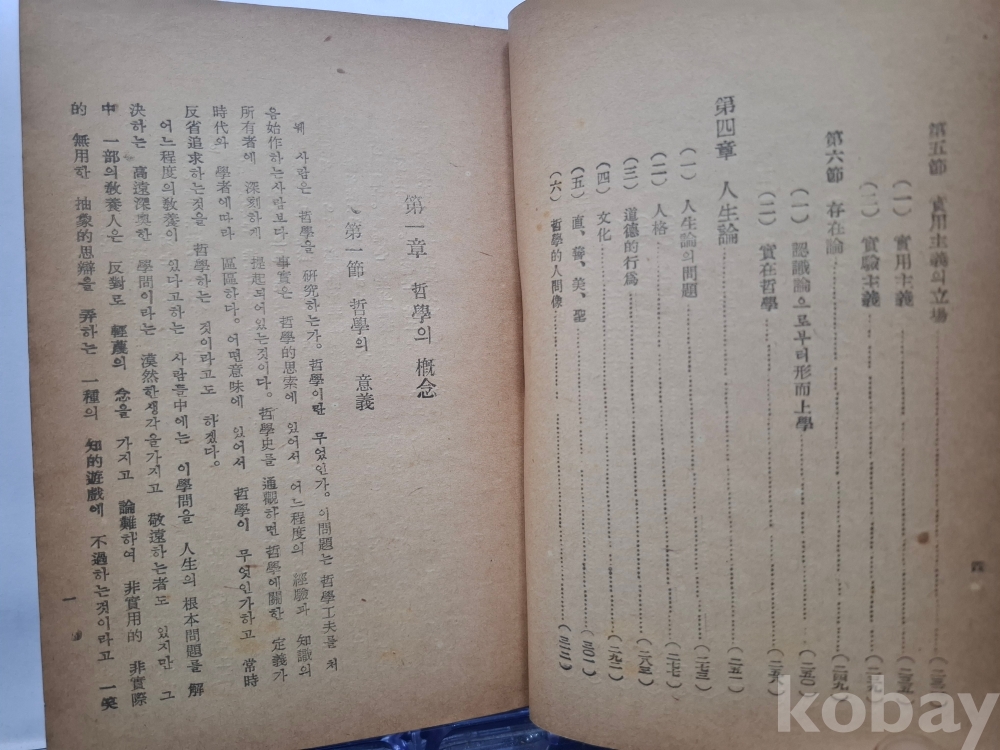 第五節 實用主義의立場
(一) 實用主義 (二三五)
(二) 實驗主義 (二三九)
第六節 存在論 (二四九)
(一) 認識論으로부터形而上學 (二五〇)
(二) 實在哲學
第四章 人生論
(一) 人生論의問題 (二七三)
(二) 人格 (二七七)
(三) 道德的行爲 (二八三)
(四) 文化 (二九一)
(五) 直、善、美、聖 (三〇一)
(六) 哲學的人間像
四
第一章 哲學의 槪念
第一節 哲學의 意義
왜 사람은 哲學을 硏究하는가。哲學이란 무었인가。이問題는 哲學工夫를 처
음始作하는사람보다 事實은 哲學的思索에 있어서 어느程度의 經驗과 知識의
所有者에 深刻하게 提起되어있는것이다。哲學史를 通觀하면 哲學에關한 定義가
時代와 學者에따라 區區하다。어떤意味에 있어서 哲學이 무엇인가하고 常時
反省追求하는것을 哲學하는 것이라고도 하겠다。
어느程度의敎養이 있다고하는 사람들中에는 이學問을 人生의 根本問題를 解
決하는 高遠深奧한 學問이라는 漠然한생각을가지고 敬遠하는者도 있지만 그
中 一部의敎養人은 反對로 輕蔑의 念을 가지고 論難하여 非實用的 非實際
的 無用한 抽象的思辯을 弄하는 一種의 知的遊戱에 不過하는것이라고 一笑
一
kobay